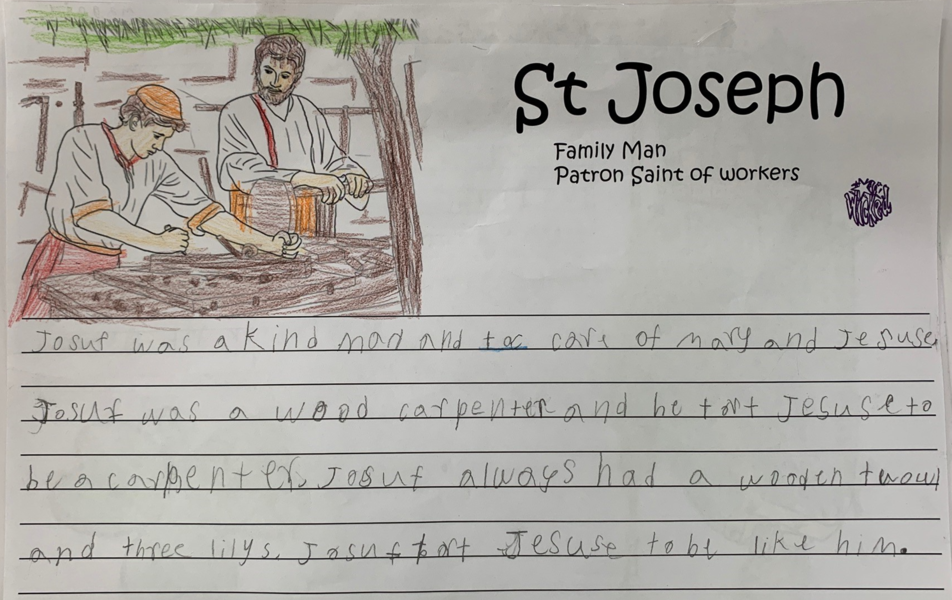 St Joseph
Family Man
Patron Saint of workers
Josuf was a kind man and toc care of mary and Jesuse.
Josuf was a wood carpenter and he tort Jesuse to
be a carpenter. Josuf always had a wooden twowl
and three lilys. Josuf tort Jesuse to be like him.